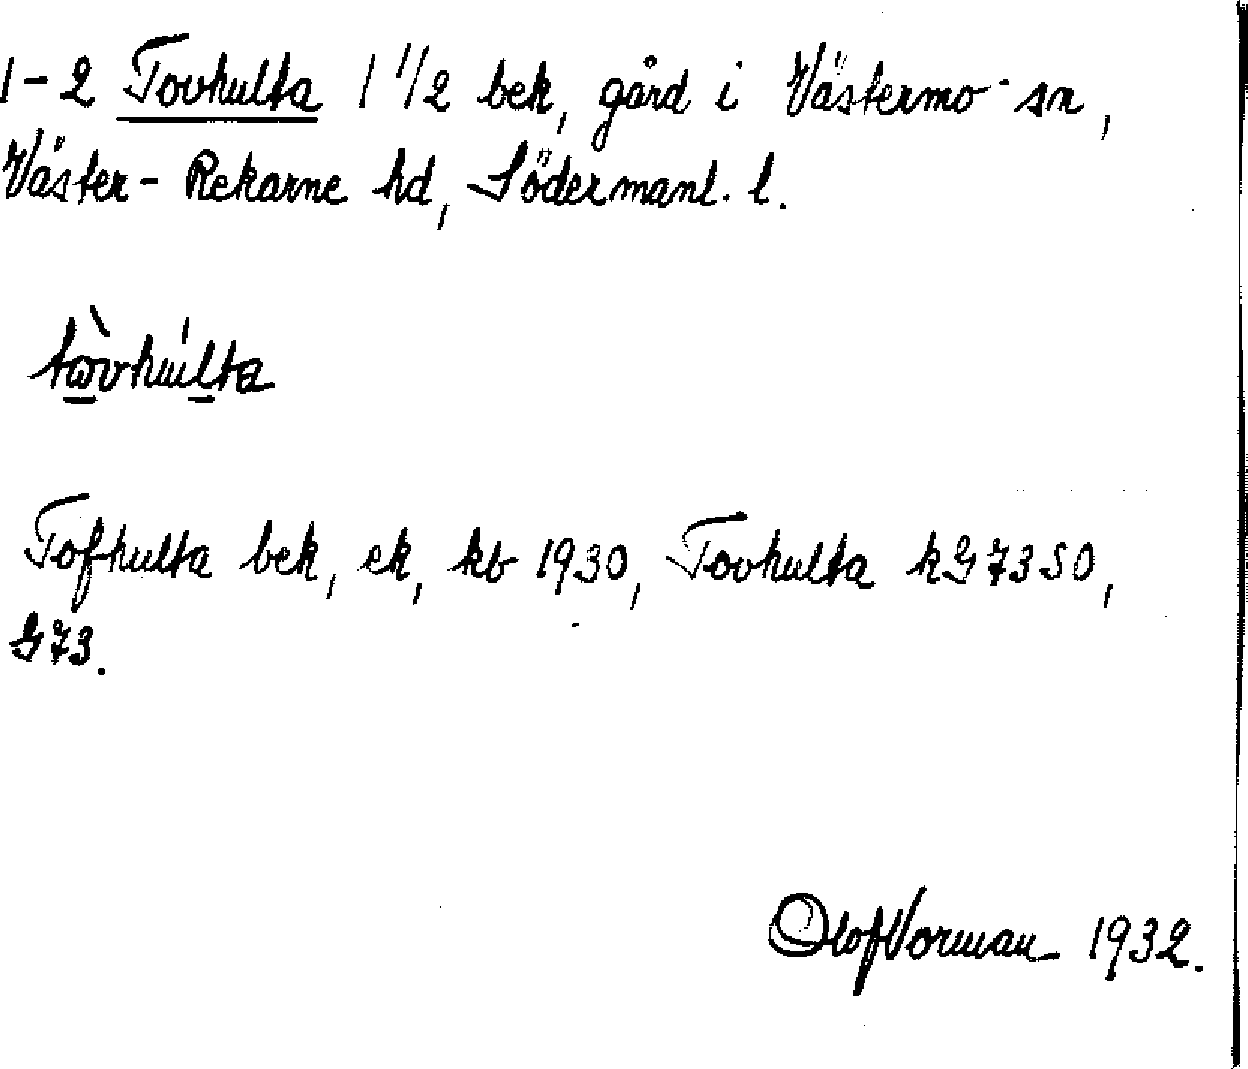 1-2 Tovhulta 1 1/2 bek, gård i Västermo sn,
Väster-Rekarne hd, Södermanl. l.
tòvhúlta
Tofhulta bek, ek, kb 1930, Tovhulta hG 73 SO,
G 73.
Olof Vorman 1932.